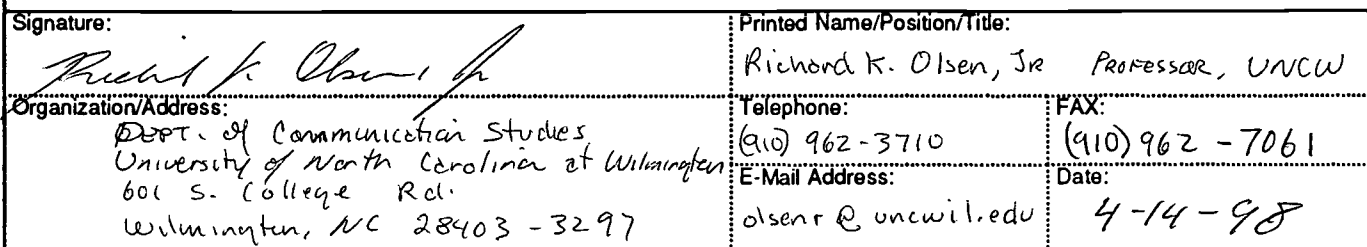 Signature:
Richard K. Olsen Jr
Printed Name/Position/Title:
Richard K. Olsen, JR PROFESSOR, UNCW
Organization/Address:
DEPT. of Communication Studies
University of North Carolina at Wilmington
601 S. College Rd.
Wilmington, NC 28403-3297
Telephone:
(910) 962-3710
FAX:
(910) 962-7061
E-Mail Address:
olsenr@uncwil.edu
Date:
4-14-98